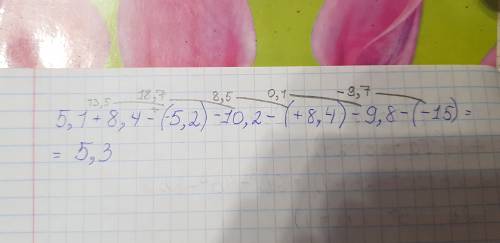 13,5 18,7 8,5 0,1 -9,7
5,1+8,4-(-5,2)-10,2-(+8,4)-9,8-(-15)=
= 5,3